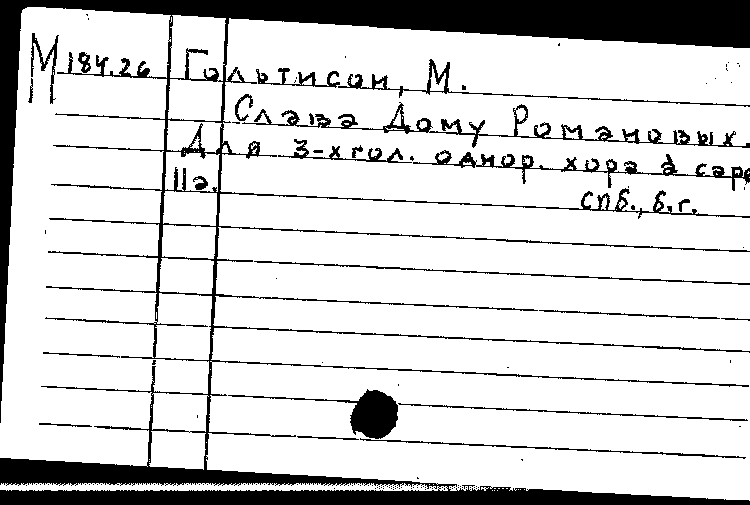 М 184.26 Гольтисон, М.
Слава Дому Романовых.
Для 3-хгол. однор. хора à cape
11а. СПб., б.г.